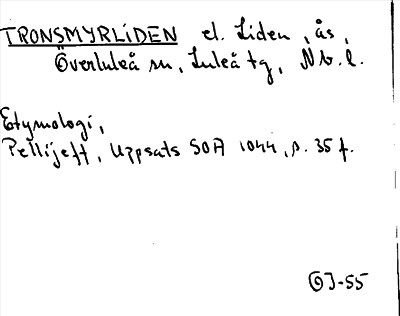 TRONSMYRLIDEN el. Liden, ås,
Överluleå sn, Luleå tg, Nb. l.
Etymologi,
Pellijeff, Uppsats SOA 1044, s. 35 f.
GJ-55